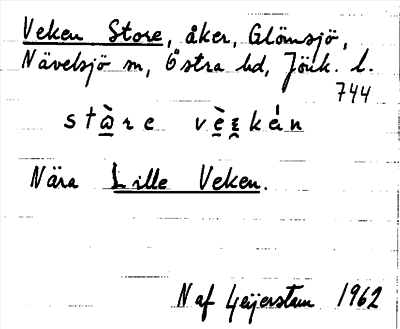 Veken Store, åker, Glömsjö,
Nävelsjö sn, Östra hd, Jönk. l.
744
stὼre vὲεkėn
Nära Lille Veken.
N af Geijerstam 1962